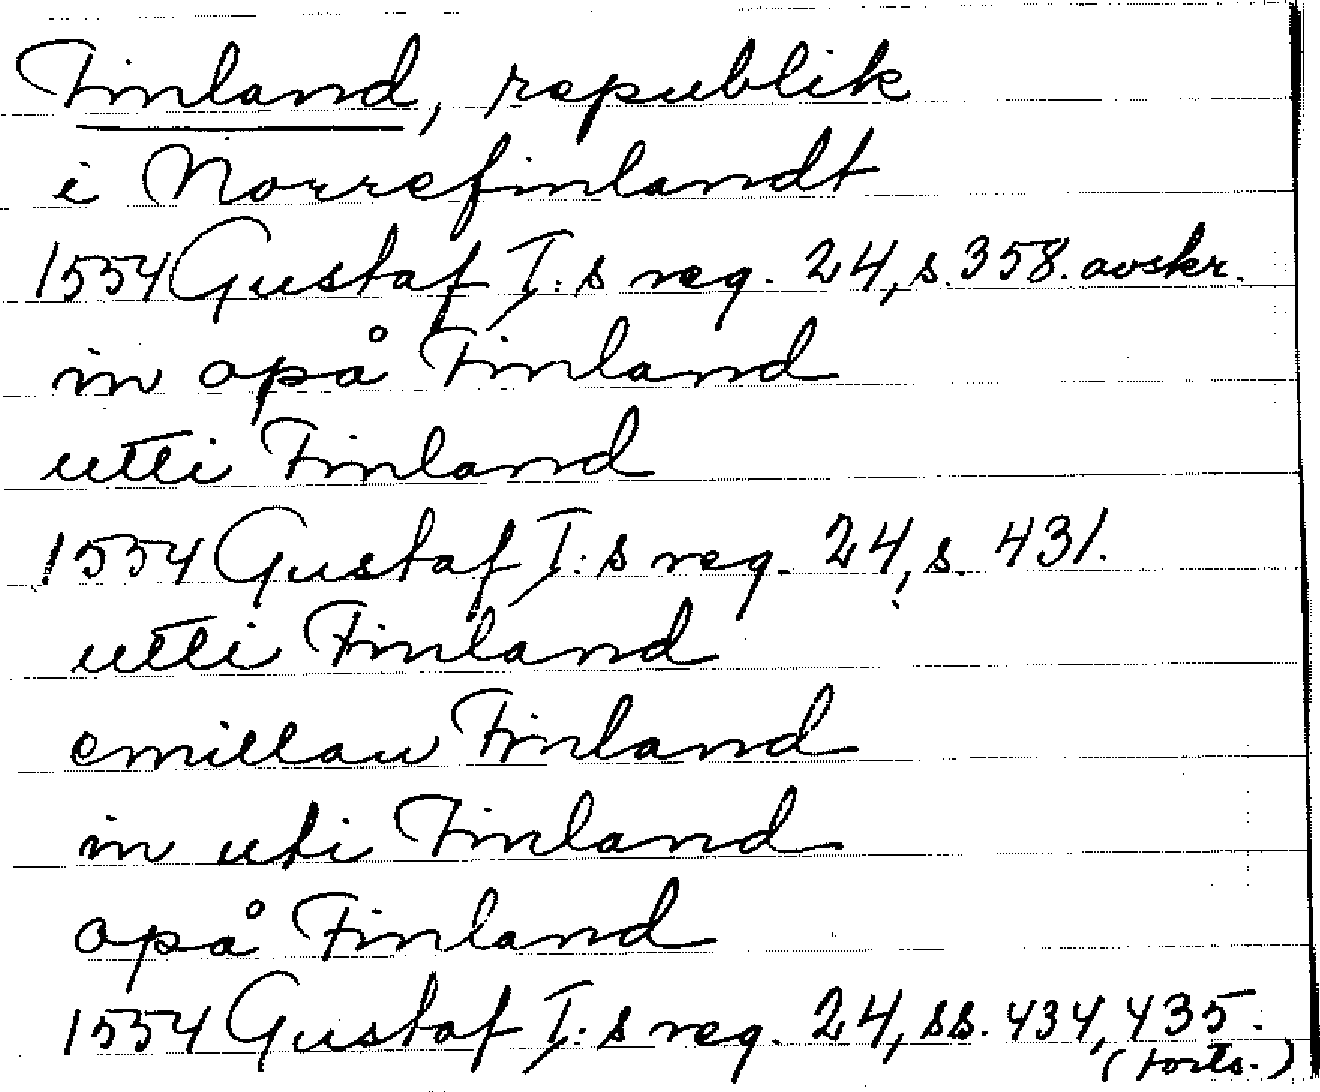 Finland, republik
i Norrefinlandt
1554 Gustaf I:s reg. 24, s. 358. avskr.
in opå Finland
utti Finland
1554 Gustaf I:s reg. 24, s. 431.
utti Finland
emillan Finland
in uti Finland
opå Finland
1554 Gustaf I:s reg. 24, ss. 434, 435.
(forts.)